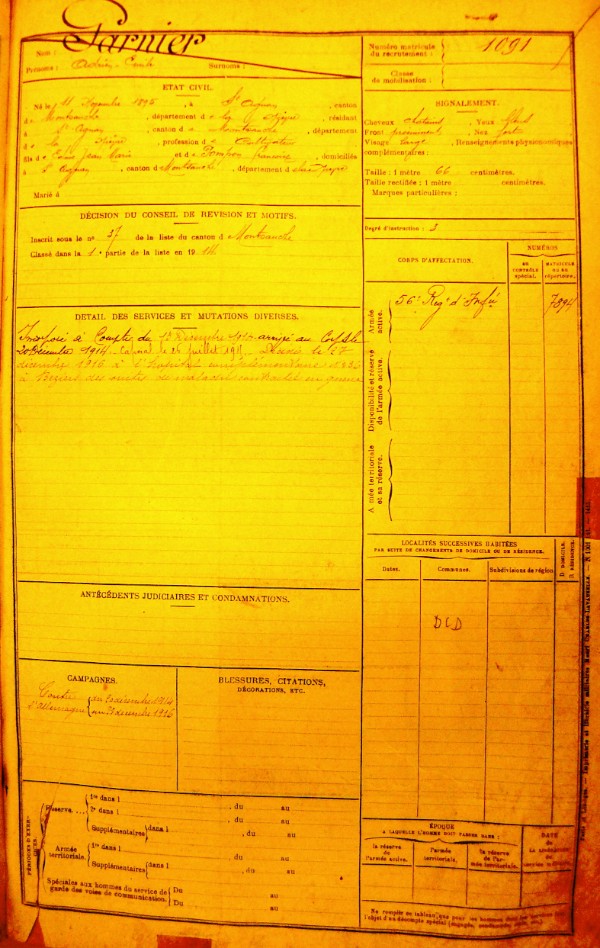 Garnier
Nom :
Prénoms : Emile Surnoms :
Numéro matricule du recrutement : 1091
Classe de mobilisation :
ETAT CIVIL.
Né le 11 1895, à St Aignan, canton
d Montsauche, département d la Nièvre, résidant
à St Aignan, canton d Montsauche, département
d la Nièvre, profession d Cultivateur
fils d Jean Marie et d Françoise, domiciliés
à St Aignan, canton d Montsauche, département d
Marié à
SIGNALEMENT.
Cheveux châtain, Yeux
Front proéminent, Nez fort
Visage large, Renseignements physionomiques
complémentaires :
Taille : 1 mètre 66 centimètres.
Taille rectifiée : 1 mètre centimètres.
Marques particulières :
Degré d'instruction : 3
DÉCISION DU CONSEIL DE REVISION ET MOTIFS.
Inscrit sous le n° 37 de la liste du canton d Montsauche
Classé dans la 1e partie de la liste en 1914.
DETAIL DES SERVICES ET MUTATIONS DIVERSES.
Incorporé à compter du Décembre arrivé au Corps le
20 Décembre 1914. Caporal le 26 juillet Décédé le 27
décembre 1916 à l'hôpital complémentaire
à des suites de maladie contractée en
CORPS D'AFFECTATION.
NUMÉROS
DU CONTRÔLE spécial.
MATRICULE OU AU répertoire.
Armée active.
56e Régt d'Infie
7894
Disponibilité et réserve de l'armée active.
Armée territoriale et sa réserve.
LOCALITÉS SUCCESSIVES HABITÉES
PAR SUITE DE CHANGEMENTS DE DOMICILE OU DE RÉSIDENCE.
Dates. Communes. Subdivisions de région.
D. DOMICILE.
R. RÉSIDENCE.
DCD
ANTÉCÉDENTS JUDICIAIRES ET CONDAMNATIONS.
CAMPAGNES.
Contre l'Allemagne
du 20 décembre 1914
au 27 décembre 1916
BLESSURES, CITATIONS,
DÉCORATIONS, ETC.
PÉRIODES D'EXERCICES.
Réserve
1re dans l , du au
2e dans l , du au
Supplémentaires dans l , du au
Armée territoriale.
1re dans l , du au
Supplémentaires dans l , du au
Spéciales aux hommes du service de
garde des voies de communication.
Du au
Du au
ÉPOQUE
A LAQUELLE L'HOMME DOIT PASSER DANS :
la réserve de l'armée active.
l'armée territoriale.
la réserve de l'armée territoriale.
DATE
de la libération du service militaire.